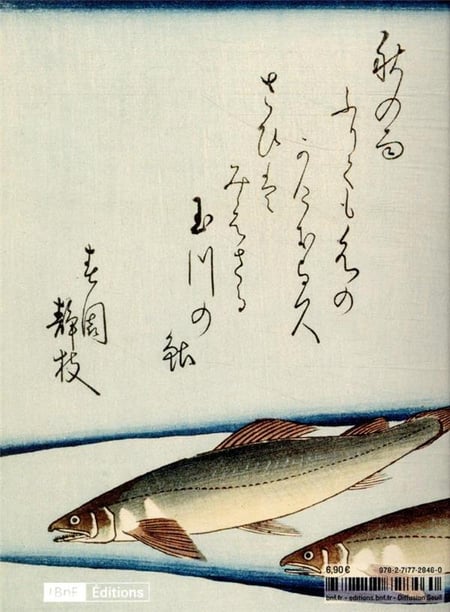 秋の雨
ふりても水の
みえさる
玉川の
鮎
春園
静枝
{BnF Éditions
6,90 €
978-2-7177-2846-0
bnf.fr - editions.bnf.fr - Diffusion Seuil